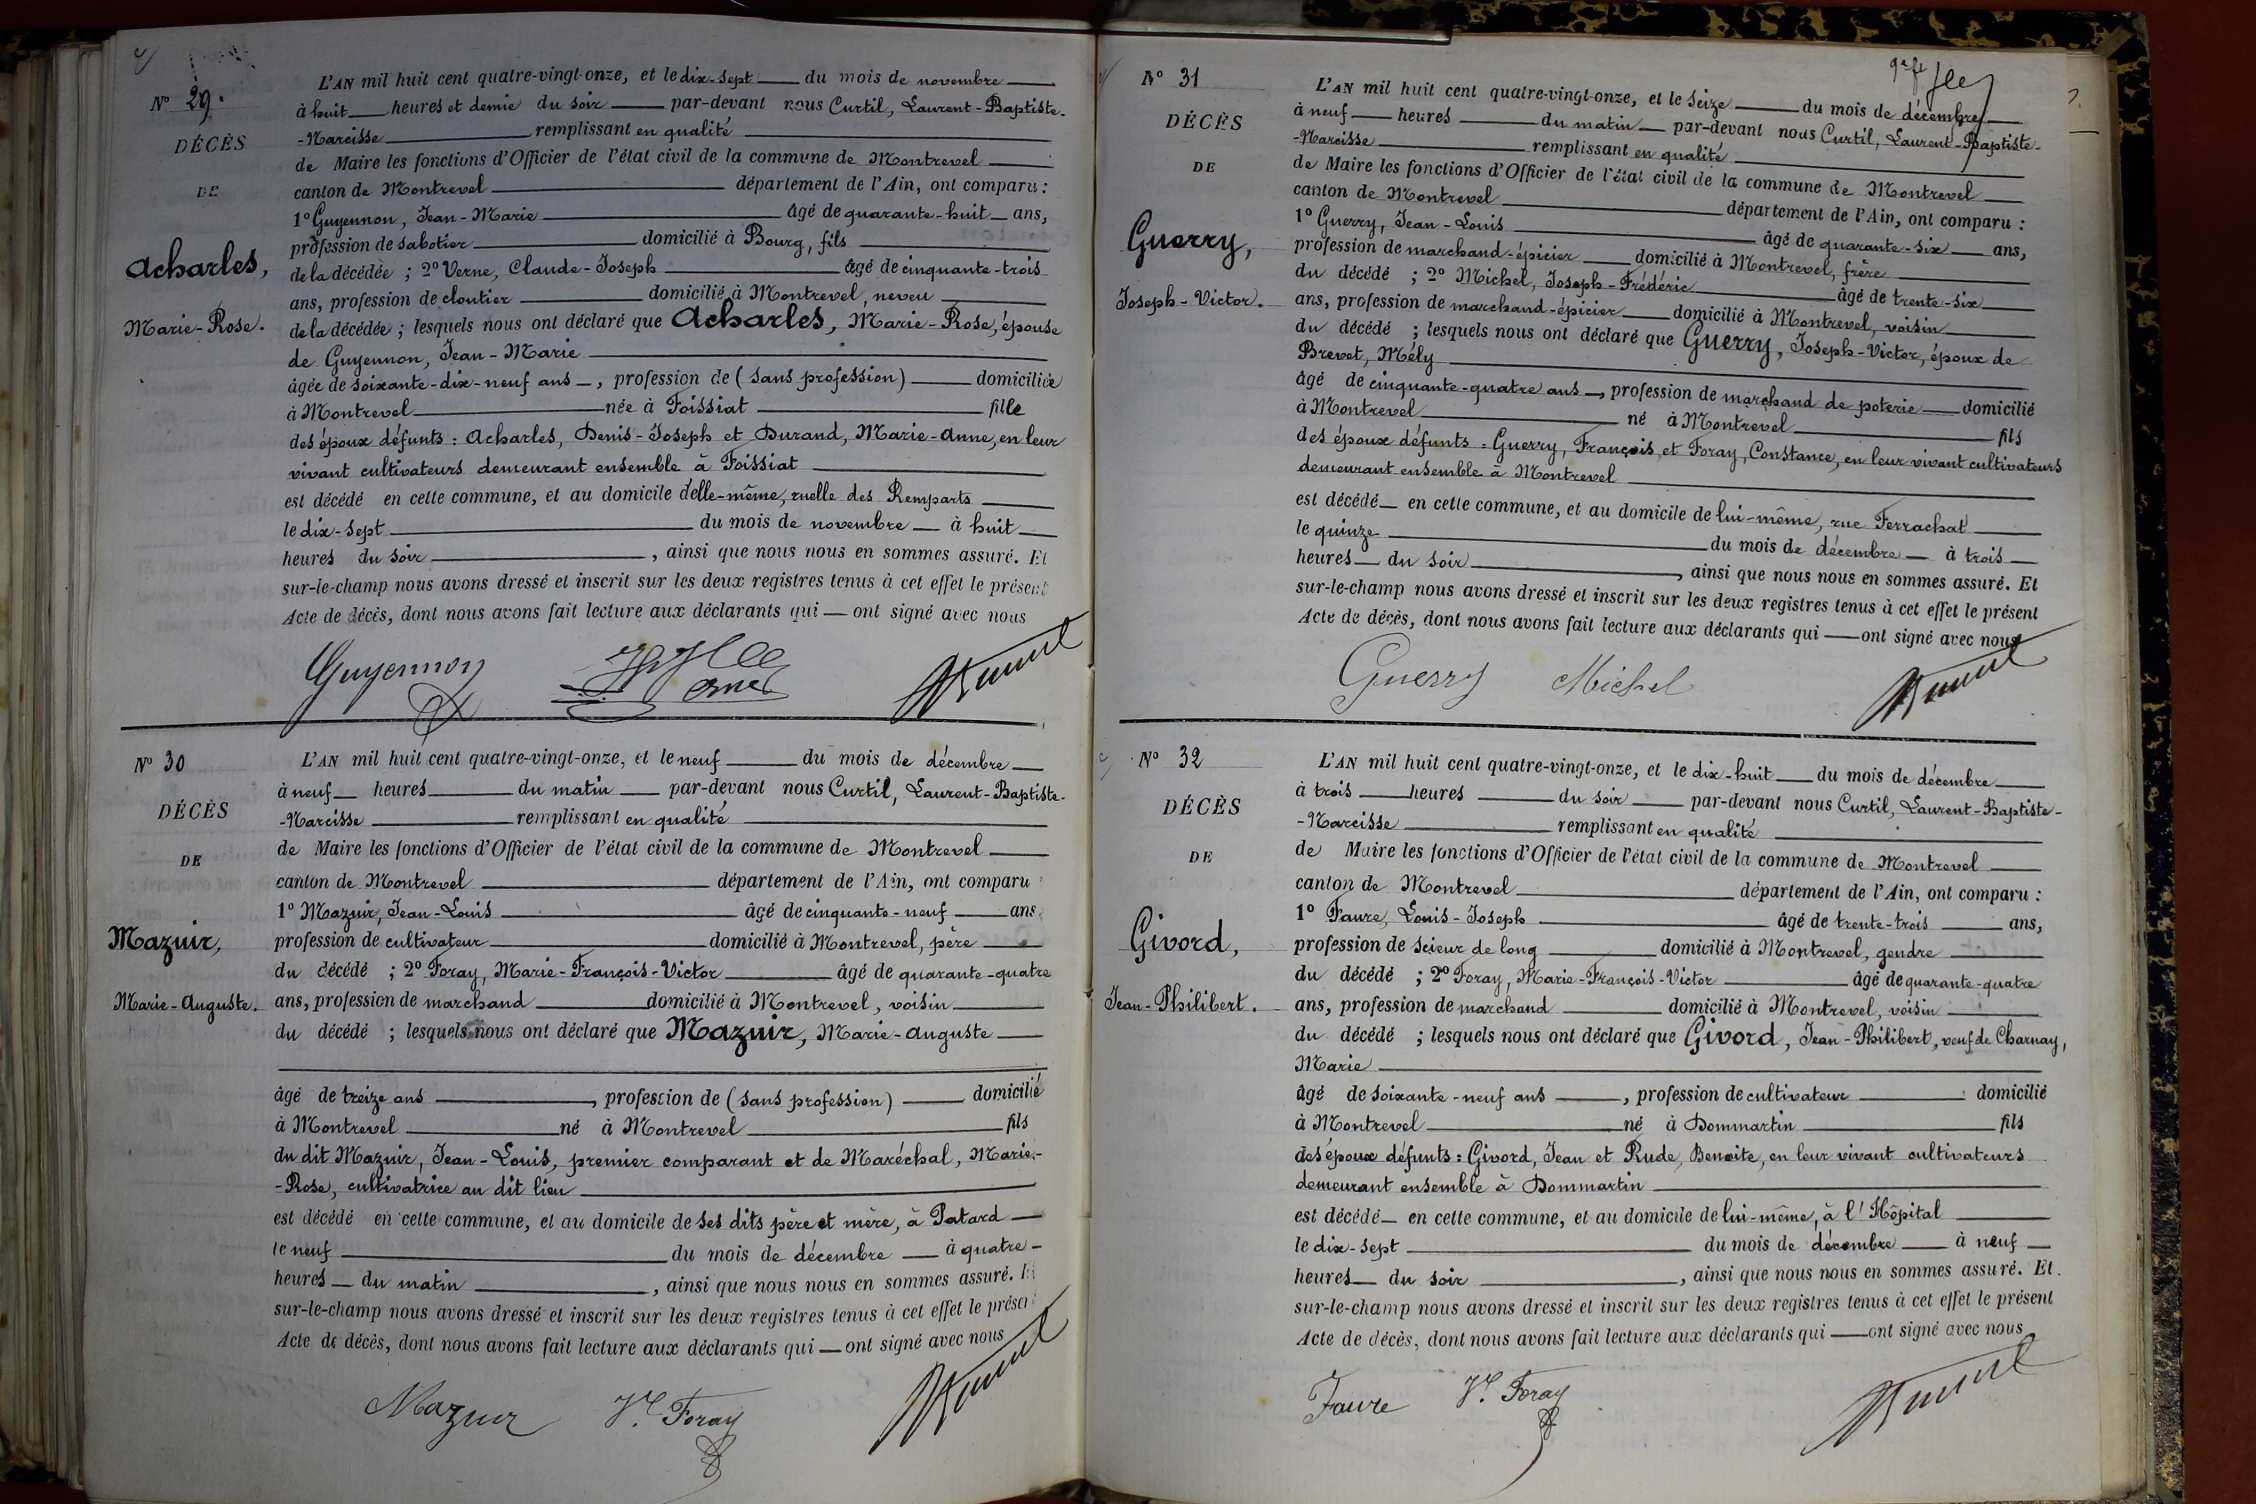 N° 29.
DÉCÈS
DE
Acharles,
Marie-Rose.
L'AN mil huit cent quatre-vingt-onze, et le dix-sept du mois de novembre
à huit heures et demie du soir par-devant nous Curtil, Laurent-Baptiste-
-Narcisse remplissant en qualité
de Maire les fonctions d'Officier de l'état civil de la commune de Montrevel
canton de Montrevel département de l'Ain, ont comparu :
1° Guyennon, Jean-Marie âgé de quarante-huit ans,
profession de sabotier domicilié à Bourg, fils
de la décédée ; 2° Verne, Claude-Joseph âgé de cinquante-trois
ans, profession de cloutier domicilié à Montrevel, neveu
de la décédée ; lesquels nous ont déclaré que Acharles, Marie-Rose, épouse
de Guyennon, Jean-Marie
âgée de soixante-dix-neuf ans, profession de (sans profession) domiciliée
à Montrevel née à Foissiat fille
des époux défunts : Acharles, Denis-Joseph et Durand, Marie-Anne, en leur
vivant cultivateurs demeurant ensemble à Foissiat
est décédé en cette commune, et au domicile d'elle-même, ruelle des Remparts
le dix-sept du mois de novembre à huit
heures du soir, ainsi que nous nous en sommes assuré. Et
sur-le-champ nous avons dressé et inscrit sur les deux registres tenus à cet effet le présent
Acte de décès, dont nous avons fait lecture aux déclarants qui ont signé avec nous
Guyennon
N° 30
DÉCÈS
DE
Mazuir,
Marie-Auguste.
L'AN mil huit cent quatre-vingt-onze, et le neuf du mois de décembre
à neuf heures du matin par-devant nous Curtil, Laurent-Baptiste-
-Narcisse remplissant en qualité
de Maire les fonctions d'Officier de l'état civil de la commune de Montrevel
canton de Montrevel département de l'Ain, ont comparu
1° Mazuir, Jean-Louis âgé de cinquante-neuf ans
profession de cultivateur domicilié à Montrevel, père
du décédé ; 2° Foray, Marie-François-Victor âgé de quarante-quatre
ans, profession de marchand domicilié à Montrevel, voisin
du décédé ; lesquels nous ont déclaré que Mazuir, Marie-Auguste
âgé de treize ans, profession de (sans profession) domicilié
à Montrevel né à Montrevel fils
du dit Mazuir, Jean-Louis, premier comparant et de Maréchal, Marie-
-Rose, cultivatrice au dit lieu
est décédé en cette commune, et au domicile de ses dits père et mère, à Patard
le neuf du mois de décembre à quatre
heures du matin, ainsi que nous nous en sommes assuré. Et
sur-le-champ nous avons dressé et inscrit sur les deux registres tenus à cet effet le présen
Acte de décès, dont nous avons fait lecture aux déclarants qui ont signé avec nous
Mazuir Vr. Foray
N° 31
DÉCÈS
DE
Guerry,
Joseph-Victor.
L'AN mil huit cent quatre-vingt-onze, et le seize du mois de décembre
à neuf heures du matin par-devant nous Curtil, Laurent-Baptiste-
-Narcisse remplissant en qualité
de Maire les fonctions d'Officier de l'état civil de la commune de Montrevel
canton de Montrevel département de l'Ain, ont comparu :
1° Guerry, Jean-Louis âgé de quarante-six ans,
profession de marchand-épicier domicilié à Montrevel, frère
du décédé ; 2° Michel, Joseph-Frédéric âgé de trente-six
ans, profession de marchand-épicier domicilié à Montrevel, voisin
du décédé ; lesquels nous ont déclaré que Guerry, Joseph-Victor, époux de
Brevet, Mély
âgé de cinquante-quatre ans, profession de marchand de poterie domicilié
à Montrevel né à Montrevel fils
des époux défunts : Guerry, François et Foray, Constance, en leur vivant cultivateurs
demeurant ensemble à Montrevel
est décédé en cette commune, et au domicile de lui-même, rue Ferrachat
le quinze du mois de décembre à trois
heures du soir, ainsi que nous nous en sommes assuré. Et
sur-le-champ nous avons dressé et inscrit sur les deux registres tenus à cet effet le présent
Acte de décès, dont nous avons fait lecture aux déclarants qui ont signé avec nous
Guerry Michel
N° 32
DÉCÈS
DE
Givord,
Jean-Philibert.
L'AN mil huit cent quatre-vingt-onze, et le dix-huit du mois de décembre
à trois heures du soir par-devant nous Curtil, Laurent-Baptiste-
-Narcisse remplissant en qualité
de Maire les fonctions d'Officier de l'état civil de la commune de Montrevel
canton de Montrevel département de l'Ain, ont comparu :
1° Faure, Louis-Joseph âgé de trente-trois ans,
profession de scieur de long domicilié à Montrevel, gendre
du décédé ; 2° Foray, Marie-François-Victor âgé de quarante-quatre
ans, profession de marchand domicilié à Montrevel, voisin
du décédé ; lesquels nous ont déclaré que Givord, Jean-Philibert, veuf de Charnay,
Marie
âgé de soixante-neuf ans, profession de cultivateur domicilié
à Montrevel né à Dommartin fils
des époux défunts : Givord, Jean et Rude, Benoite, en leur vivant cultivateurs
demeurant ensemble à Dommartin
est décédé en cette commune, et au domicile de lui-même, à l'Hôpital
le dix-sept du mois de décembre à neuf
heures du soir, ainsi que nous nous en sommes assuré. Et
sur-le-champ nous avons dressé et inscrit sur les deux registres tenus à cet effet le présent
Acte de décès, dont nous avons fait lecture aux déclarants qui ont signé avec nous
Faure Vr. Foray